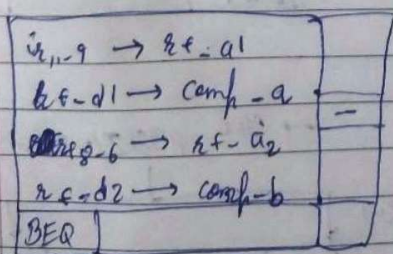 ir₁₁₋₉ → rf-a1
rf-d1 → comp-a
ir₈₋₆ → rf-a2
rf-d2 → comp-b
BEQ